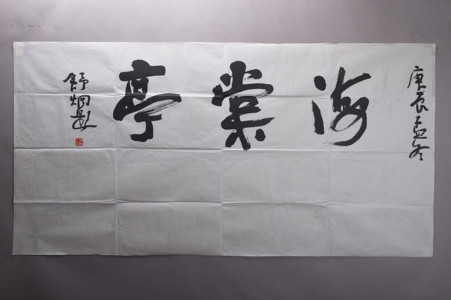 庚辰孟冬
海棠亭
舒炯